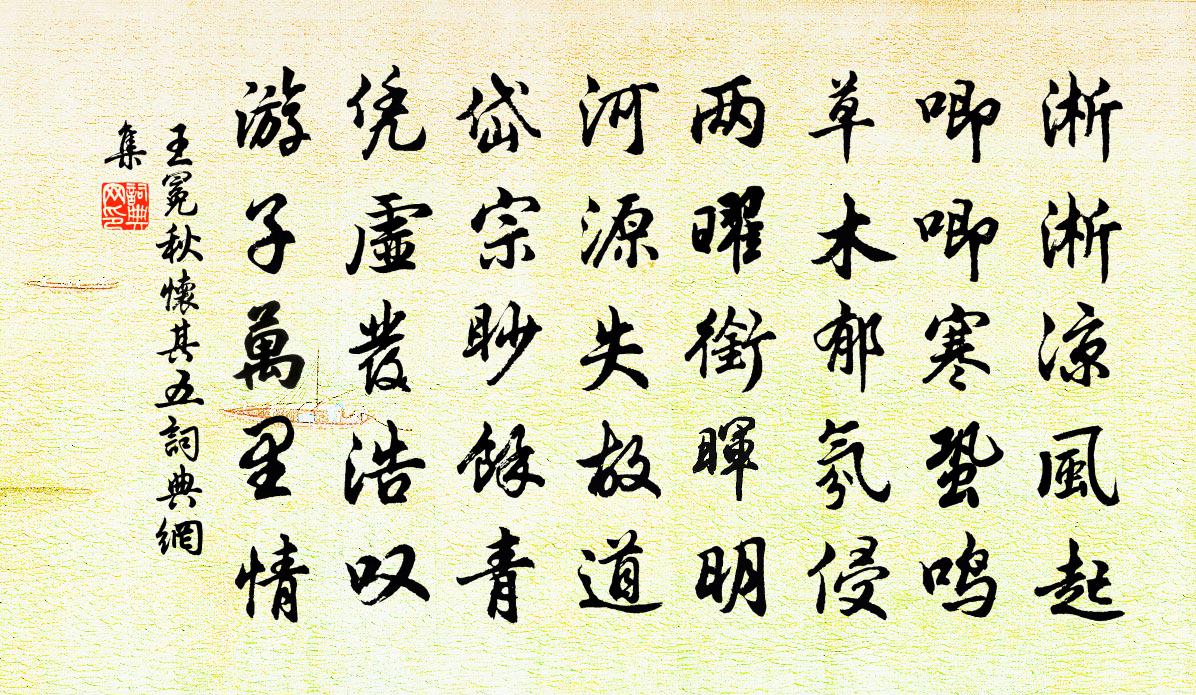 淅淅涼風起
唧唧寒蛩鸣
草木郁氛侵
两曜衔暉明
河源失故道
岱宗眇餘青
凭虚發浩叹
游子萬里情
王冕秋懷其五詞典網
集
詞典网印